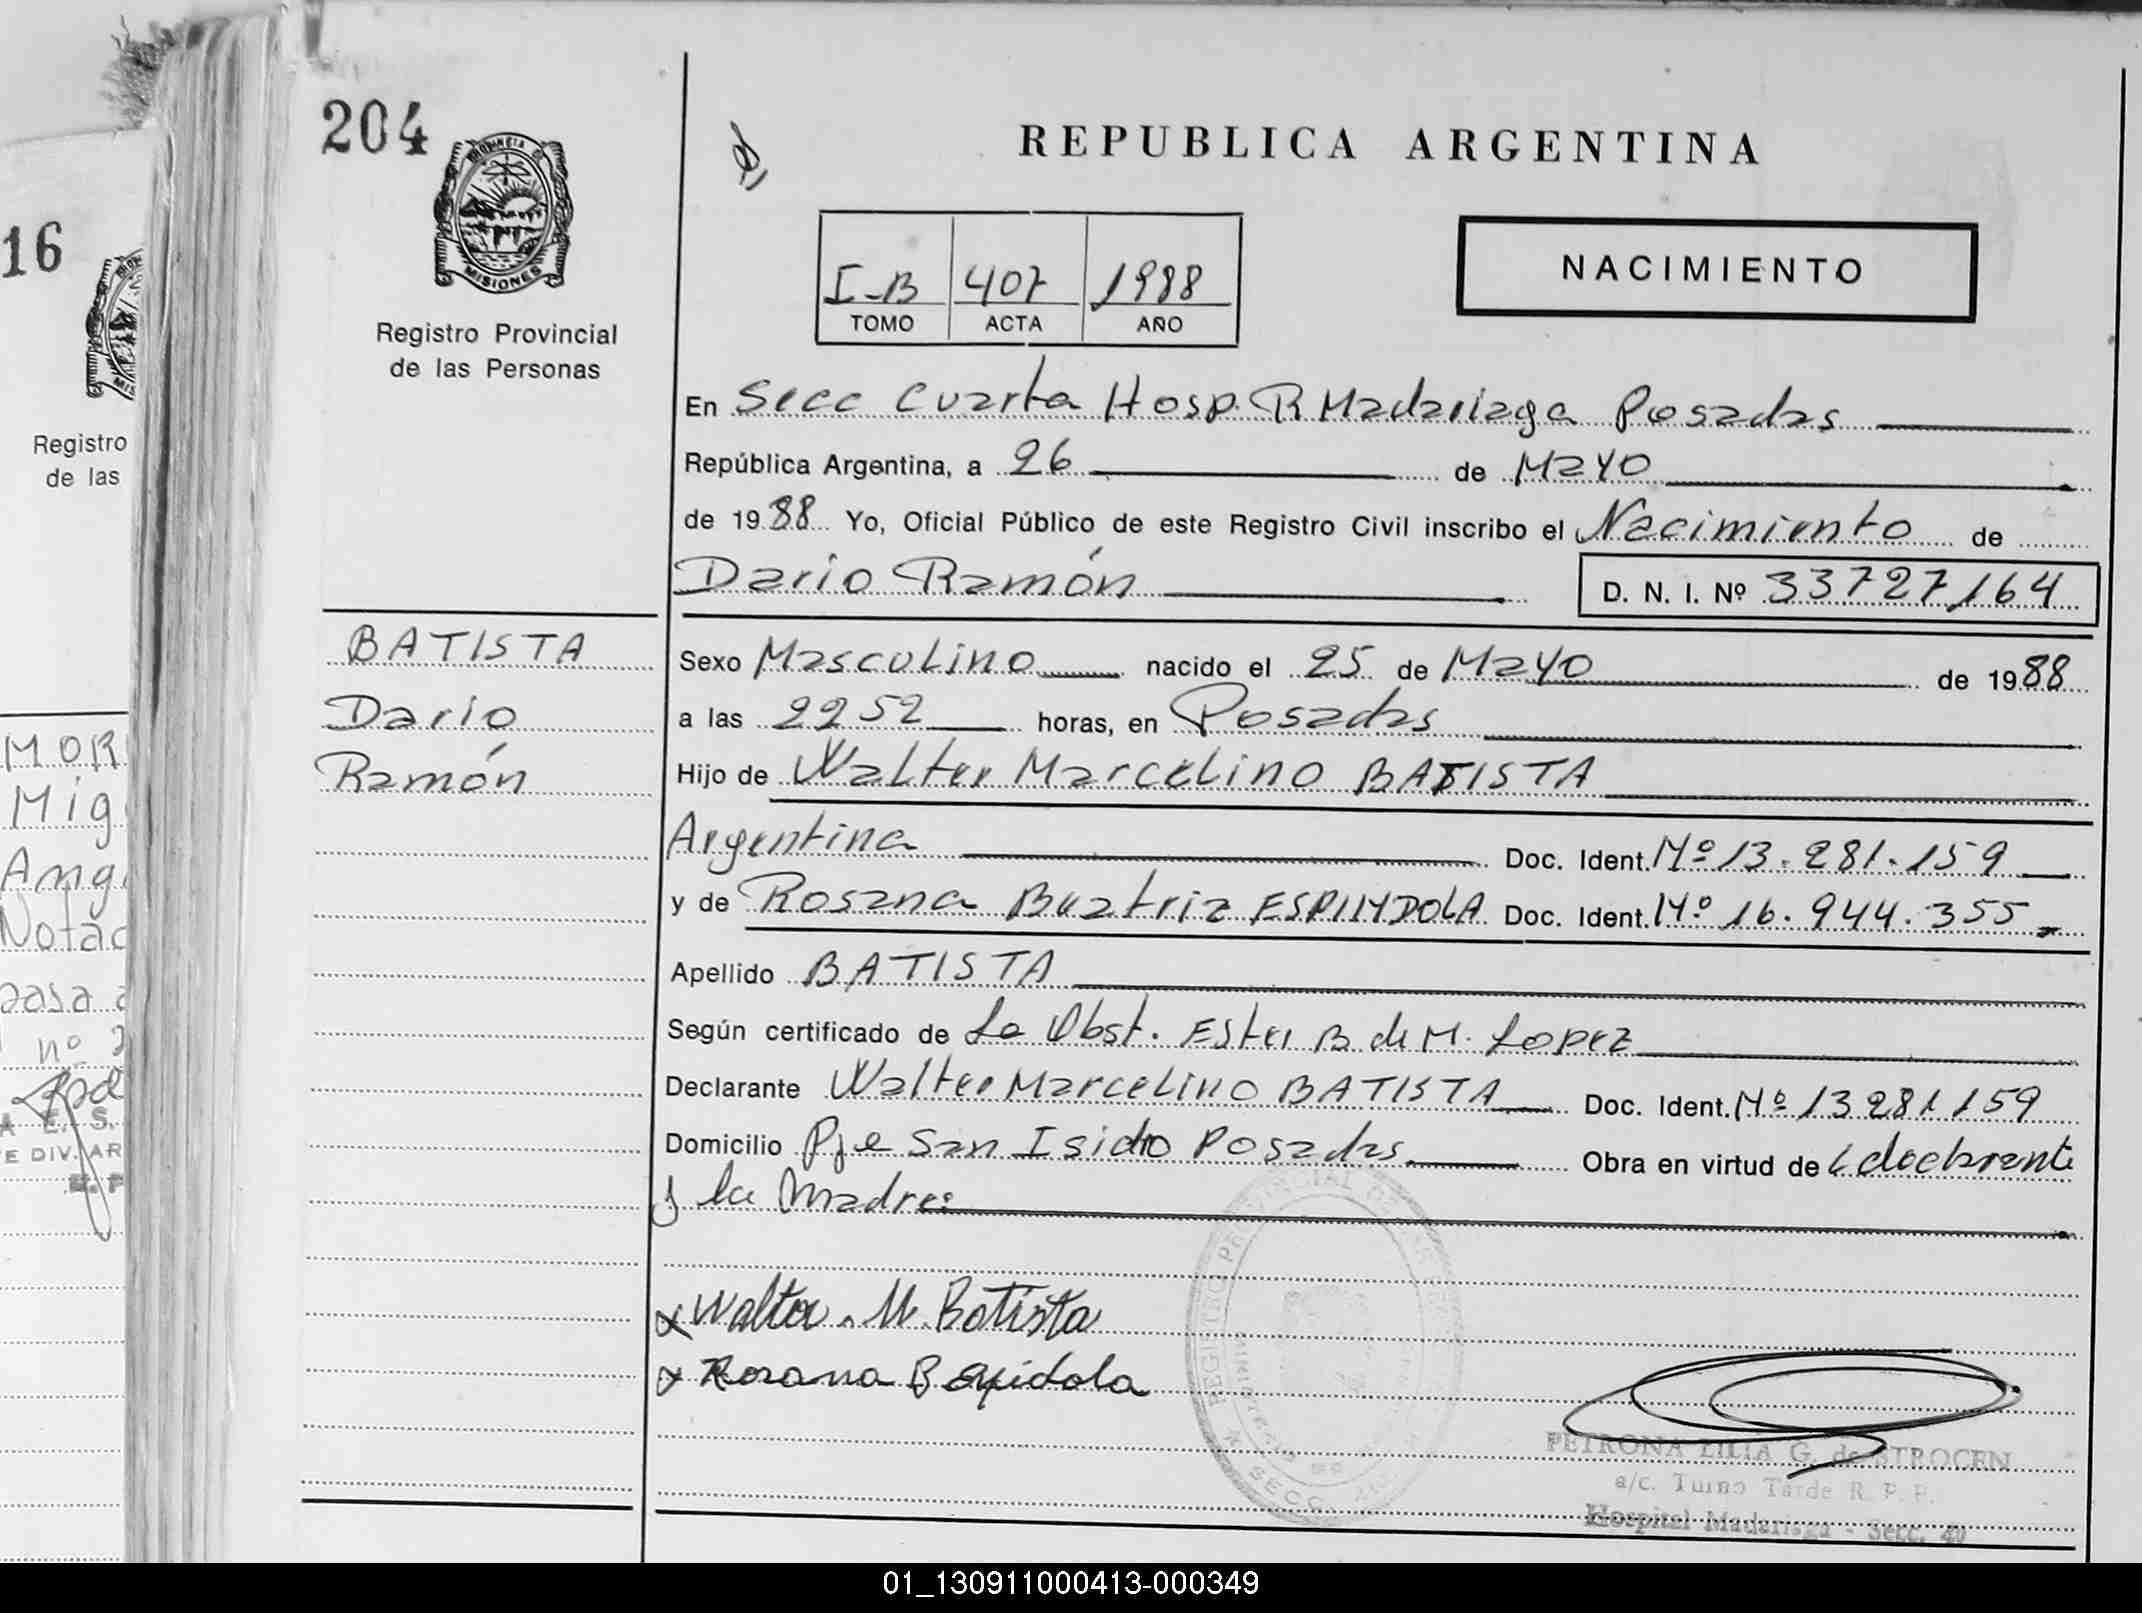 204
PROVINCIA DE
MISIONES
Registro Provincial
de las Personas
REPUBLICA ARGENTINA
I-B 407 1988
TOMO ACTA AÑO
NACIMIENTO
En Secc Cuarta Hosp. R Madariaga Posadas
República Argentina, a 26 de Mayo
de 1988 Yo, Oficial Público de este Registro Civil inscribo el Nacimiento de
Dario Ramón D. N. I. Nº 33727164
BATISTA
Dario
Ramón
Sexo Masculino nacido el 25 de Mayo de 1988
a las 2252 horas, en Posadas
Hijo de Walter Marcelino BATISTA
Argentina Doc. Ident. Nº 13.281.159
y de Rosana Beatriz ESPINDOLA Doc. Ident. Nº 16.944.355
Apellido BATISTA
Según certificado de La Obst. Ester B. de M. Lopez
Declarante Walter Marcelino BATISTA Doc. Ident. Nº 13281159
Domicilio Pje San Isidro Posadas Obra en virtud de declarante
y la Madre:
x Walter. M. Batista
x Rosana B Espidola
REGISTRO PROVINCIAL DE
SECC.
PETRONA LILIA G. de STROCEN
a/c. Turno Tarde R. P. P.
Hospital Madariaga - Secc. 4º
16
Registro
de las
MOR
Mig
Ang
Nota
nº 2
E. S.
E DIV. AR
01_130911000413-000349